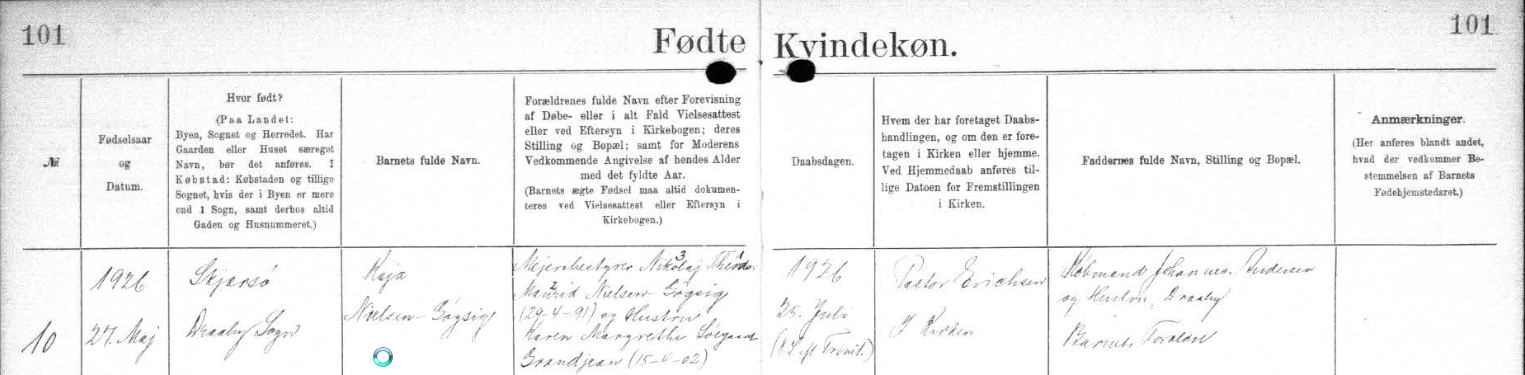 101
Fødte
Kvindekøn.
101
№
Fødselsaar
og
Datum.
Hvor født?
(Paa Landet:
Byen, Sognet og Herredet. Har
Gaarden eller Huset særeget
Navn, bør det anføres. I
Købstad: Købstaden og tillige
Sognet, hvis der i Byen er mere
end 1 Sogn, samt derhos altid
Gaden og Husnummeret.)
Barnets fulde Navn.
Forældrenes fulde Navn efter Forevisning
af Døbe- eller i alt Fald Vielsesattest
eller ved Eftersyn i Kirkebogen; deres
Stilling og Bopæl; samt for Moderens
Vedkommende Angivelse af hendes Alder
med det fyldte Aar.
(Barnets ægte Fødsel maa altid dokumen-
teres ved Vielsesattest eller Eftersyn i
Kirkebogen.)
Daabsdagen.
Hvem der har foretaget Daabs-
handlingen, og om den er fore-
tagen i Kirken eller hjemme.
Ved Hjemmedaab anføres til-
lige Datoen for Fremstillingen
i Kirken.
Faddernes fulde Navn, Stilling og Bopæl.
Anmærkninger.
(Her anføres blandt andet,
hvad der vedkommer Be-
stemmelsen af Barnets
Fødehjemstedsret.)
10
1926
27. Maj
Skjærsø
Draaby Sogn
Kaja
Nielsen-Gøgsig
Mejeribestyrer Nikolaj Theodor
Maurid Nielsen-Gøgsig
(29-4-91) og Hustru
Karen Margrethe
Grandjean (15-4-02)
1926
25. Juli
(8 S eft Trinit.)
Pastor Erichsen
I Kirken
Købmand Johannes Andersen
og Hustru, Draaby
Barnets Forældre